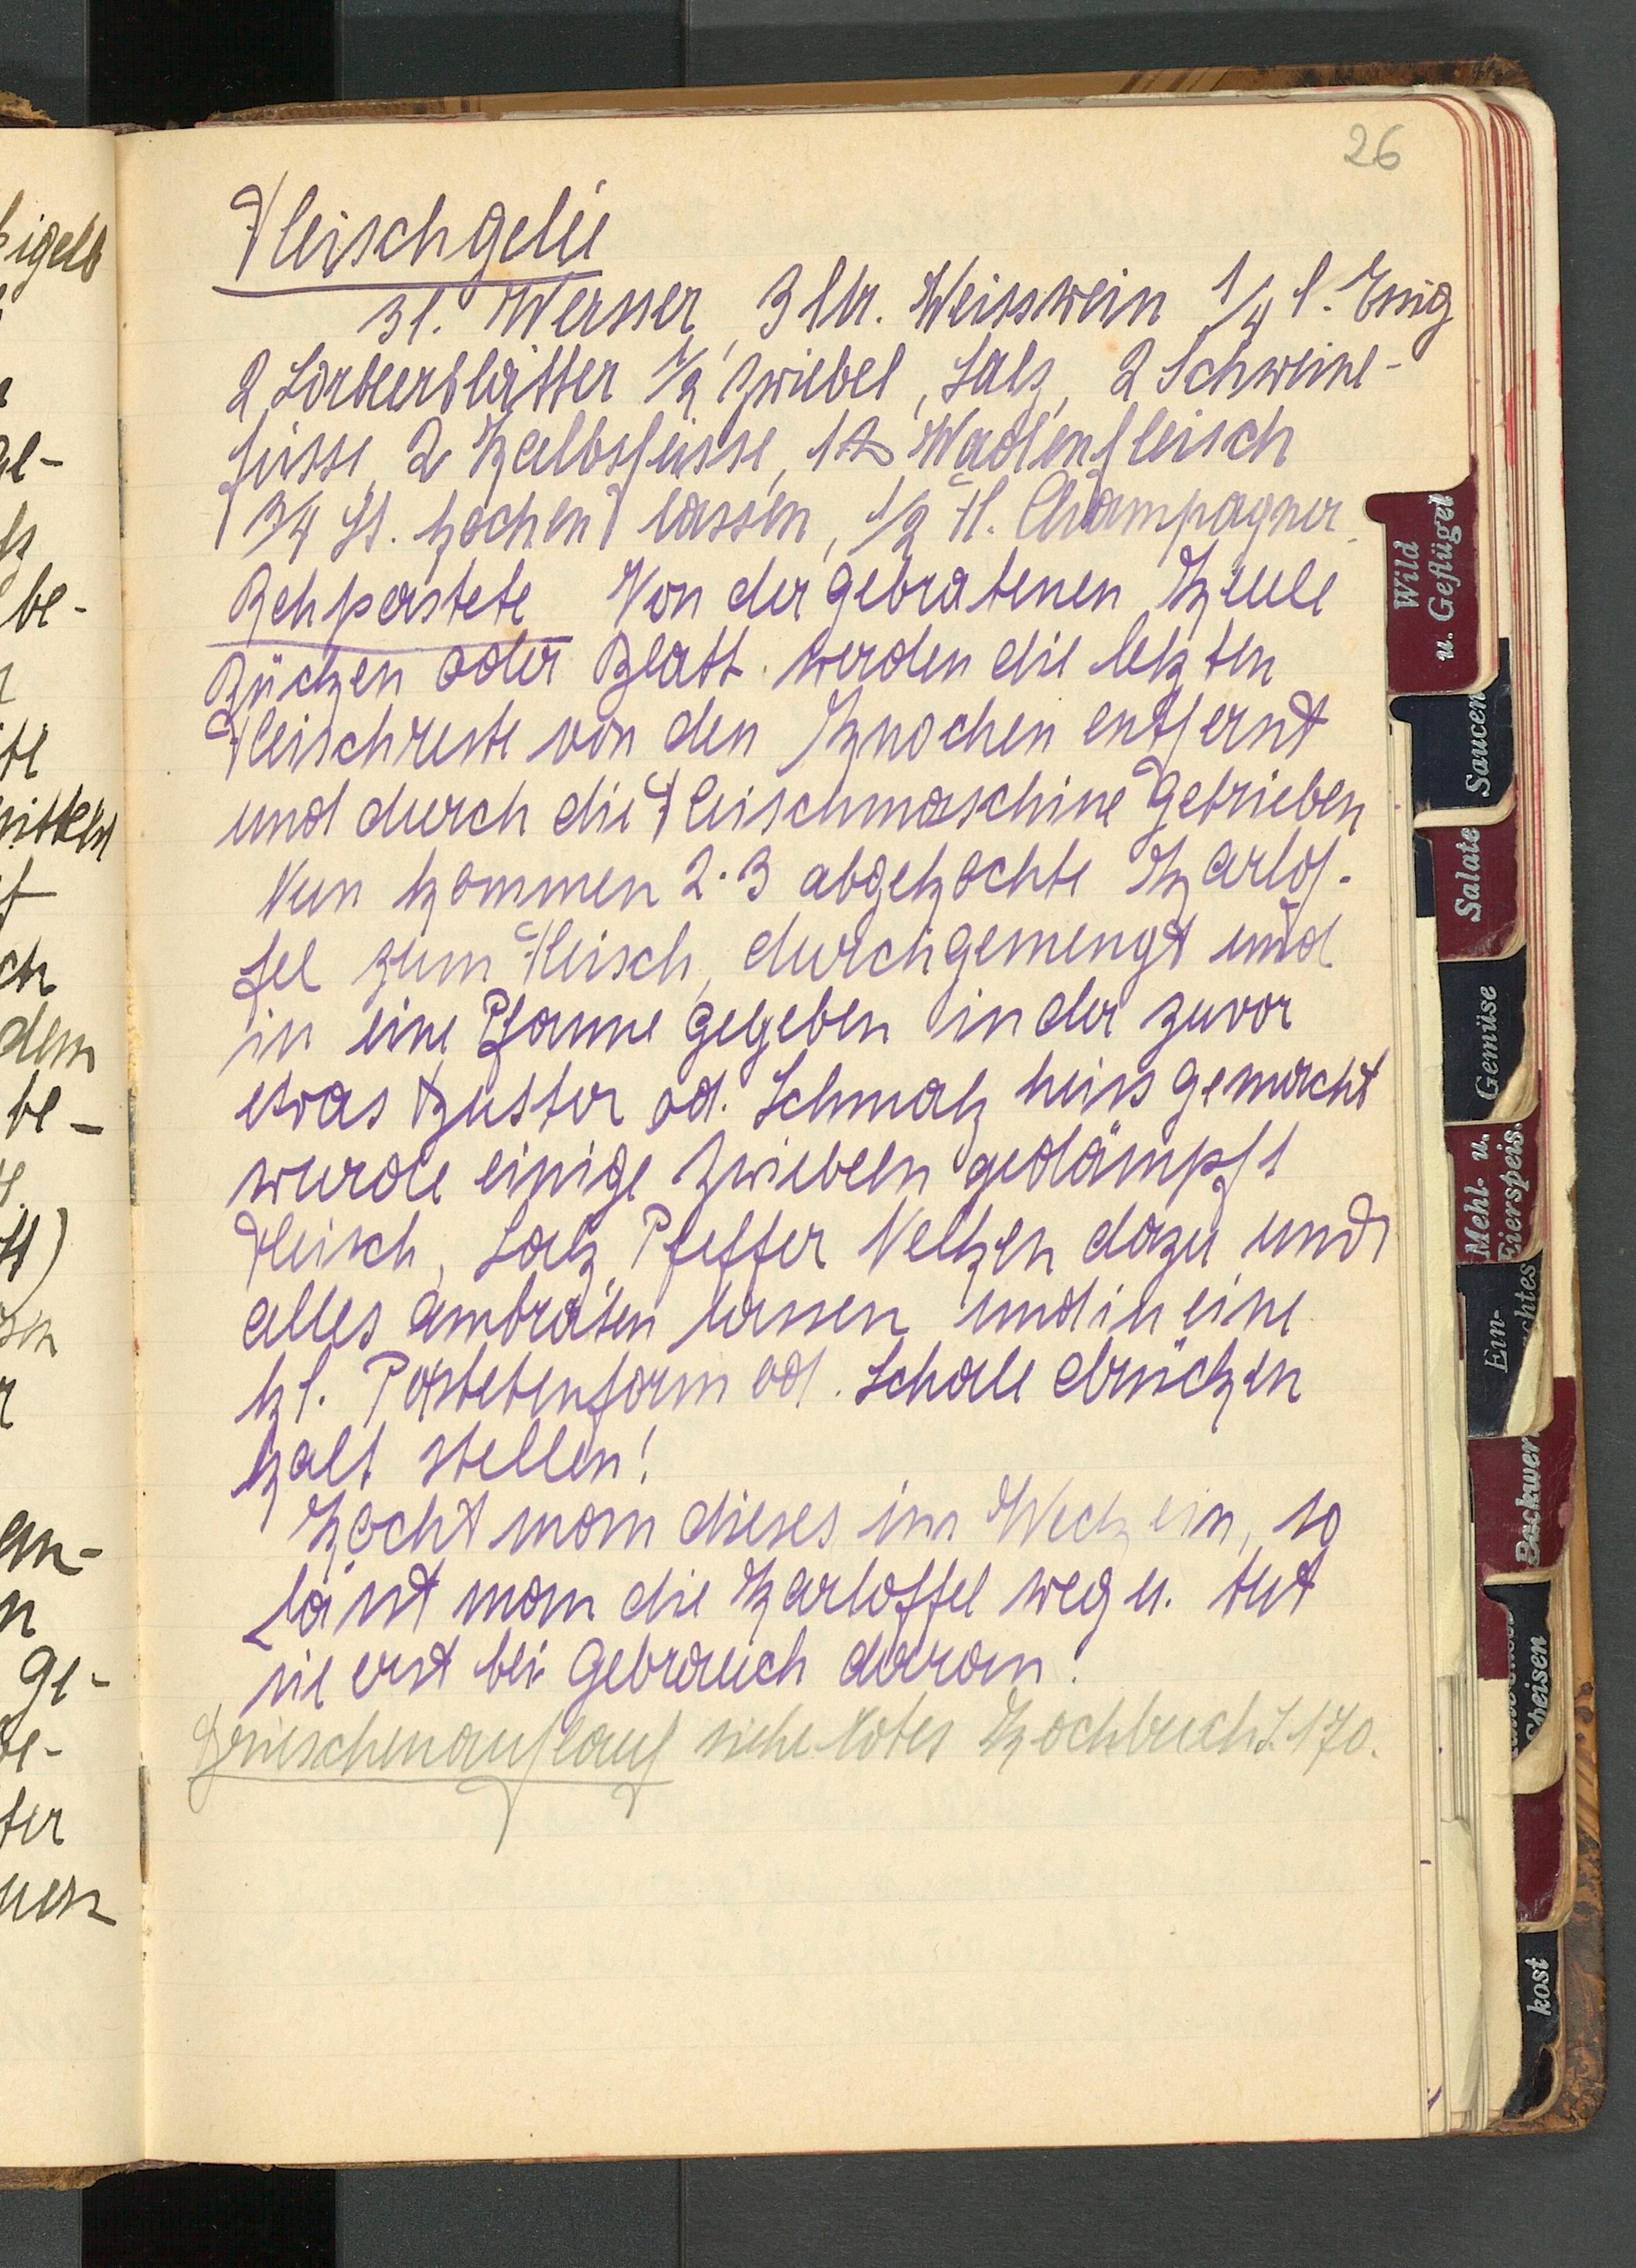 26
Fleischgelée
3 l. Wasser, 3 ltr. Weisswein 1/4 l. Essig
2 Lorbeerblätter 1/2 Zwiebel, Salz, 2 Schweine-
füsse, 2 Kalbsfüsse, 1 ℔ Wadenfleisch
3/4 St. kochen lassen, 1/2 Fl. Champagner.
Rehpastete Von der gebratenen Keule
Rücken oder Blatt werden die letzten
Fleischreste von den Knochen entfernt
und durch die Fleischmaschine getrieben
Nun kommen 2-3 abgekochte Kartof-
fel zum Fleisch, durchgemengt und
in eine Pfanne gegeben in der zuvor
etwas Butter od. Schmalz heiss gemacht
wurde einige Zwiebeln gedämpft
Fleisch, Salz Pfeffer Nelken dazu und
alles anbraten lassen und in eine
kl. Pastetenform od. Schale drücken
kalt stellen!
Kocht man dieses im Weck ein, so
lässt man die Kartoffel weg u. tut
sie erst bei Gebrauch daran!
siehe rotes Kochbuch S. 170.
Wild
u. Geflügel
Saucen
Salate
Gemüse
Mehl- u.
Eierspeis.
Ein-
chtes
Backwer
Speisen
kost
igelb
ge-
be-
ch
dem
be-
an-
n
ge-
ter